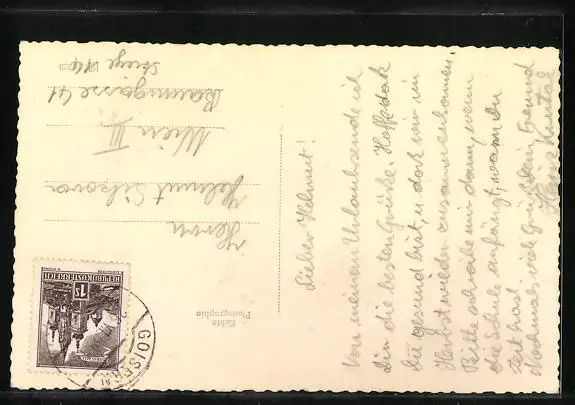 Lieber Helmut!
Von meinem Urlaub sende ich
Dir die besten Grüße. Hoffe daß
Du gesund bist, u. daß wir im
Herbst wieder zusammenkommen.
Bitte schreibe mir dann, wenn
die Schule anfängt, wann Du
Zeit hast.
Nochmals viele Grüße dein Freund
Heinz
Herrn
Helmut
Wien III
Baumgasse 41
Stiege
Echte
Photographie
1S
REPUBLIK ÖSTERREICH
GOISERN